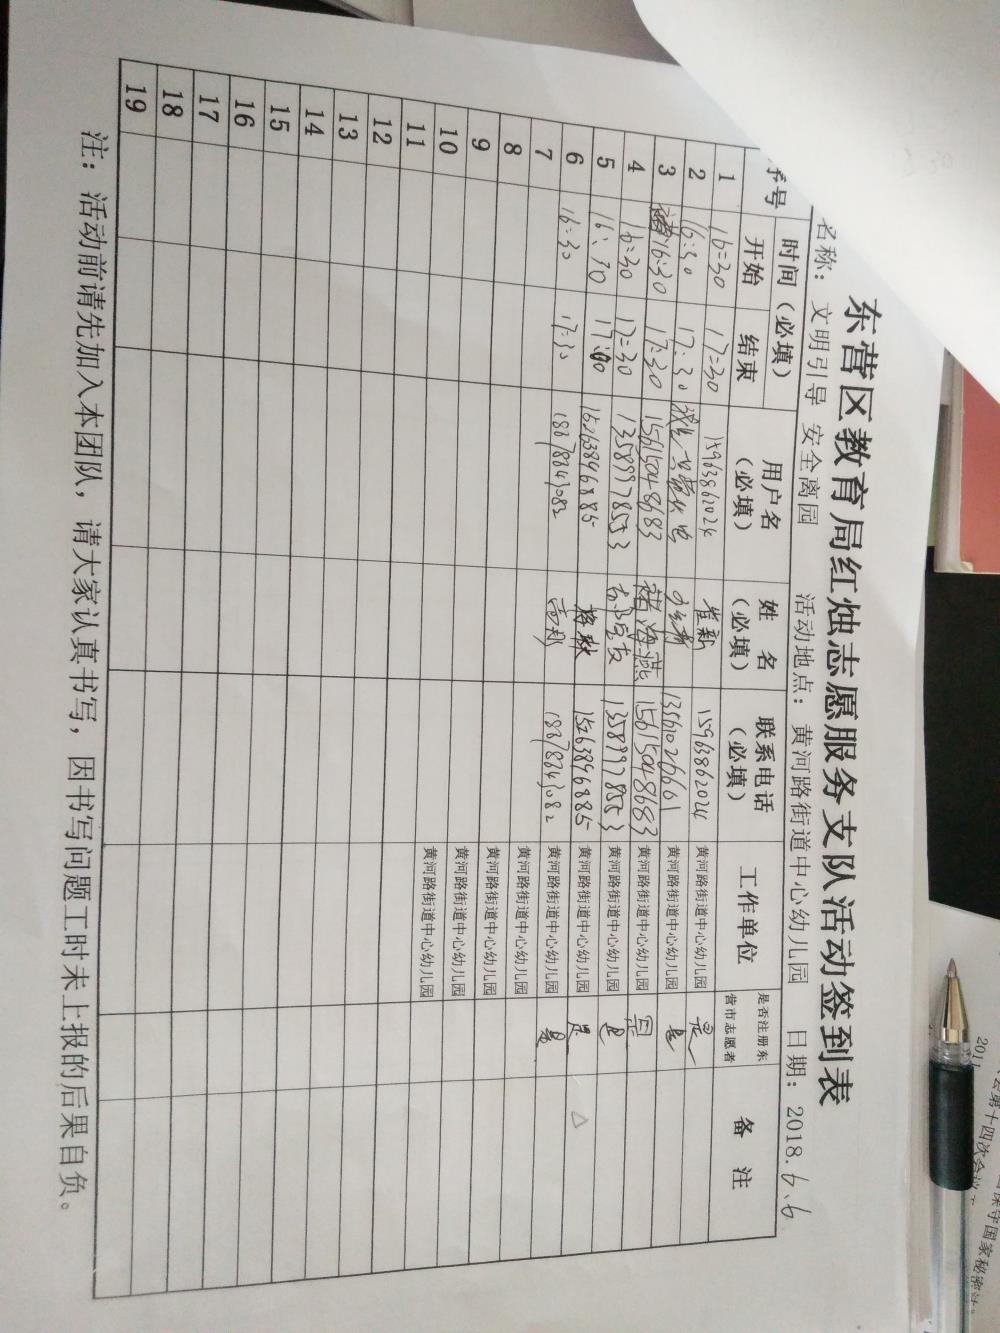 东营区教育局红烛志愿服务支队活动签到表
名称： 文明引导 安全离园 活动地点： 黄河路街道中心幼儿园 日期：2018.6.6
序号 时间（必填） 用户名（必填） 姓 名（必填） 联系电话（必填） 工作单位 是否注册东营市志愿者 备 注
开始 结束
1 16:30 17:30 15963862024 崔新 15963862024 黄河路街道中心幼儿园 是
2 16:30 17:30 13561026661 黄河路街道中心幼儿园 是
3 16:30 17:30 15615048683 褚海燕 15615048683 黄河路街道中心幼儿园 是
4 16:30 17:30 13589978553 13589978553 黄河路街道中心幼儿园 是
5 16:30 17:00 15263896885 15263896885 黄河路街道中心幼儿园 是
6 16:30 17:30 18878843082 18878843082 黄河路街道中心幼儿园 是
7 黄河路街道中心幼儿园
8 黄河路街道中心幼儿园
9 黄河路街道中心幼儿园
10 黄河路街道中心幼儿园
11
12
13
14
15
16
17
18
19
注：活动前请先加入本团队，请大家认真书写，因书写问题工时未上报的后果自负。